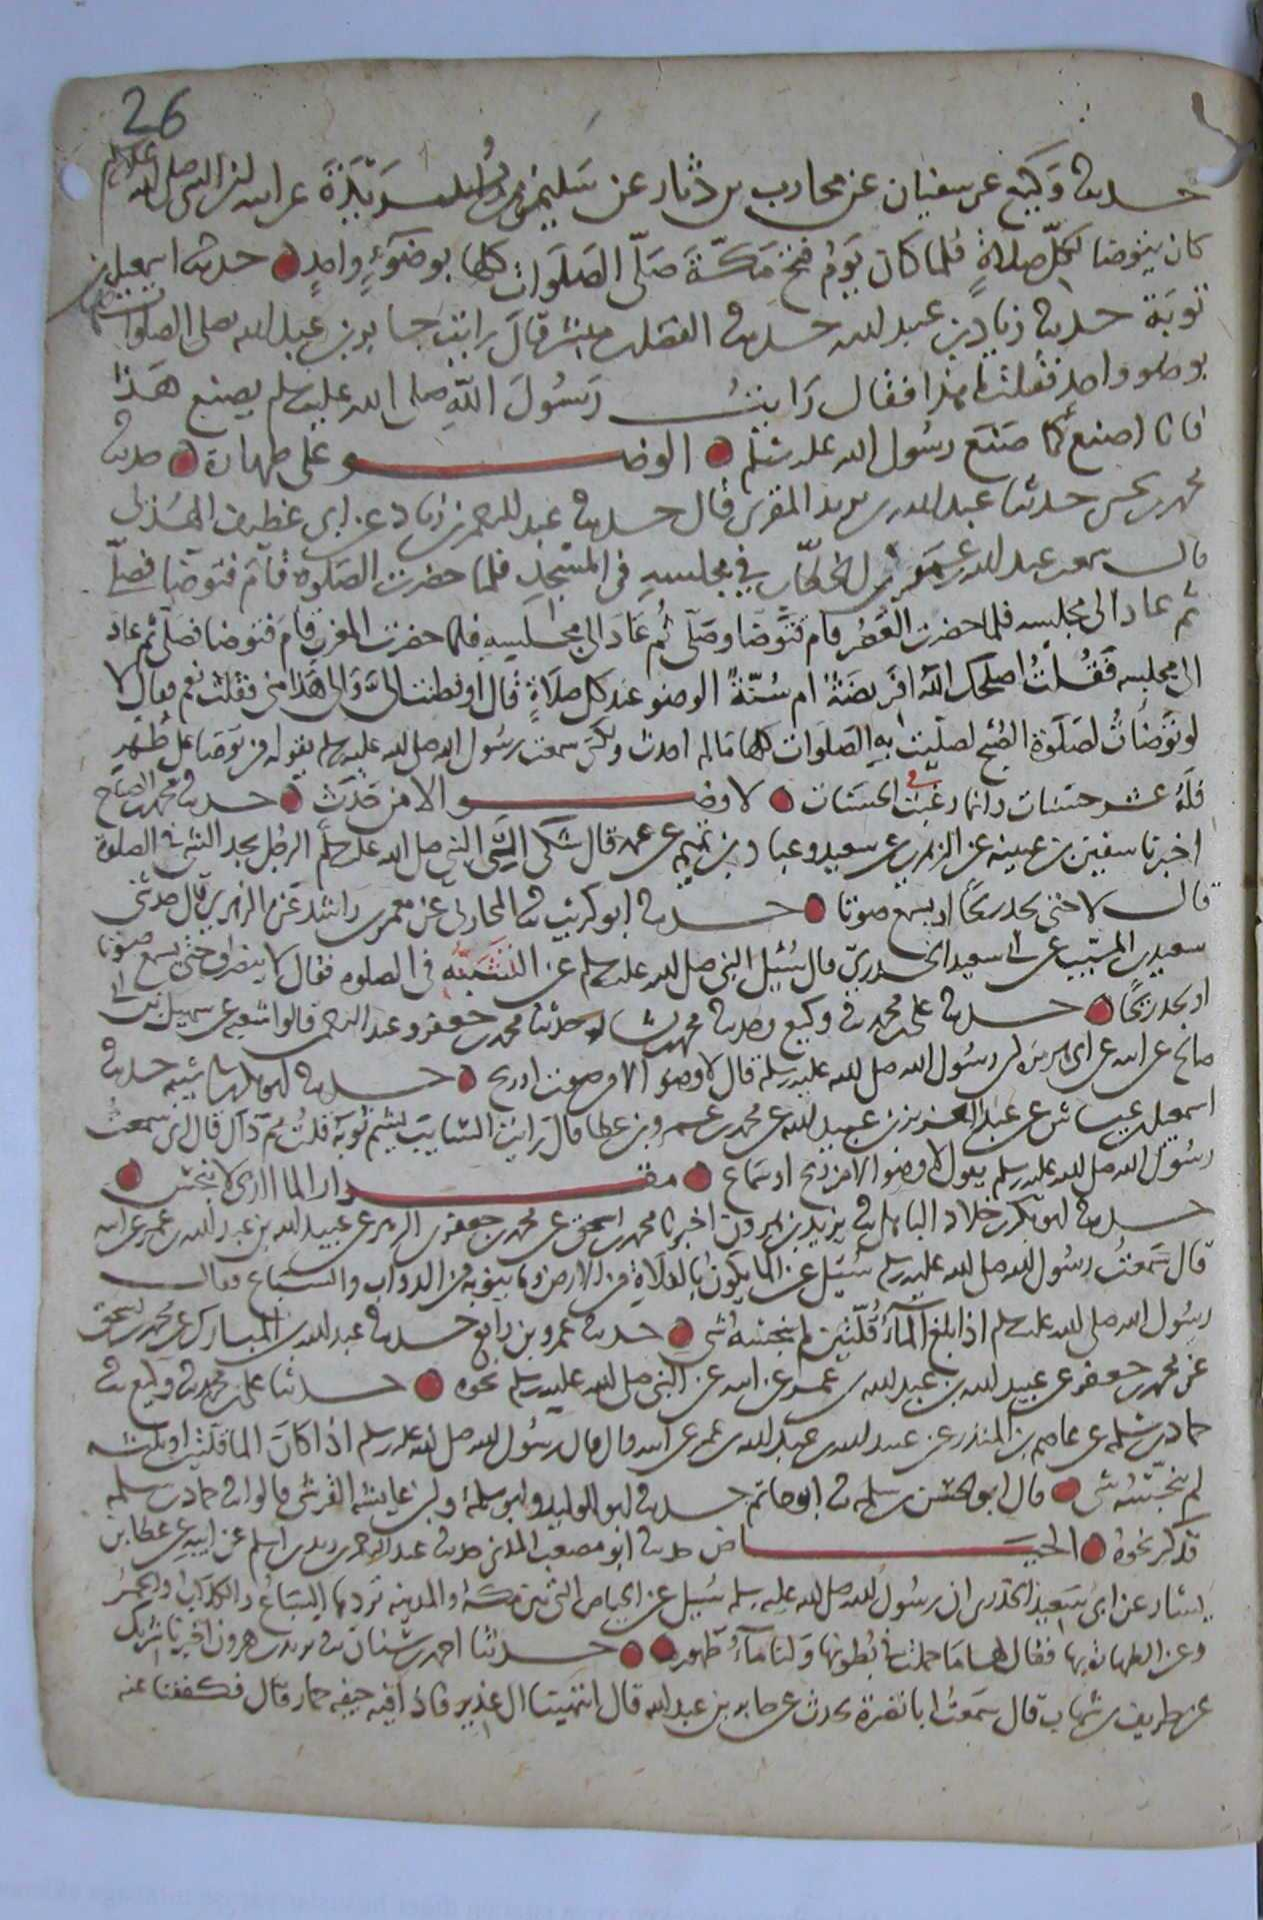 26
حدثنا وكيع عن سفيان عن محارب بن دثار عن سليمن بن بريدة عن ابيه ان النبي صلى الله عليه وسلم
كان يتوضا لكل صلاة فلما كان يوم فتح مكة صلى الصلوات كلها بوضوء واحد حدثنا اسمعيل بن
توبة حدثنا زياد بن عبد الله حدثنا الفضل بن مبشر قال رايت جابر بن عبد الله يصلى الصلوات
بوضو واحد فقلت ما هذا فقال رايت رسول الله صلى الله عليه وسلم يصنع هذا
فانا اصنع كما صنع رسول الله صلى الله عليه وسلم الوضو على طهارة حدثنا
محمد بن يحيى حدثنا عبد الله بن يزيد المقرى قال حدثنا عبد الرحمن بن زياد عن ابى غطيف الهذلى
قال سمعت عبد الله بن عمر بن الخطاب في مجلسه في المسجد فلما حضرت الصلوة قام فتوضا فصلى
ثم عاد الى مجلسه فلما حضرت العصر قام فتوضا وصلى ثم عاد الى مجلسه فلما حضرت المغرب قام فتوضا فصلى ثم عاد
الى مجلسه فقلت اصلحك الله افريضة ام سنة الوضو عند كل صلاة قال اوفطنت الى والى هذا منى فقلت نعم فقال لا
لو توضات لصلوة الصبح لصليت به الصلوات كلها ما لم احدث ولكن سمعت رسول الله صلى الله عليه وسلم يقول من توضا على طهر
فله عشر حسنات وانما رغبت في الحسنات لا وضو الا من حدث حدثنا محمد بن الصباح
اخبرنا سفين بن عيينه عن الزهرى عن سعيد وعباد بن تميم عن عمه قال شكى الى النبي صلى الله عليه وسلم الرجل يجد الشى في الصلوة
قال لا حتى يجد ريحا او يسمع صوتا حدثنا ابو كريب ثنا المحاربى عن معمر بن راشد عن الزهرى قال حدثنى
سعيد بن المسيب عن ابى سعيد الخدرى قال سئل النبي صلى الله عليه وسلم عن التشبه في الصلوه فقال لا ينصرف حتى يسمع صوتا
او يجد ريحا حدثنا على بن محمد ثنا وكيع وحدثنا محمد بن بشار حدثنا محمد بن جعفر وعبد الرحمن قالوا ثنا شعبه عن سهيل بن ابى
صالح عن ابيه عن ابى هريره ان رسول الله صلى الله عليه وسلم قال لا وضو الا من صوت او ريح حدثنا ابو بكر بن ابى شيبه حدثنا
اسمعيل بن عياش عن عبد العزيز بن عبيد الله عن محمد بن عمرو بن عطا قال رايت السايب يشم ثوبه فقلت مم ذاك قال انى سمعت
رسول الله صلى الله عليه وسلم يقول لا وضو الا من ريح او سماع مقدار الما الذى لا ينجس
حدثنا ابو بكر بن خلاد الباهلى ثنا يزيد بن هرون اخبرنا محمد بن اسحق عن محمد بن جعفر بن الزبير عن عبيد الله بن عبد الله بن عمر عن ابيه
قال سمعت رسول الله صلى الله عليه وسلم سئل عن الما يكون بالفلاة من الارض وما ينوبه من الدواب والسباع فقال
رسول الله صلى الله عليه وسلم اذا بلغ الماء قلتين لم ينجسه شى حدثنا عمرو بن رافع حدثنا عبد الله بن المبارك عن محمد بن اسحق
عن محمد بن جعفر عن عبيد الله بن عبد الله بن عمر عن ابيه عن النبي صلى الله عليه وسلم نحوه حدثنا على بن محمد ثنا وكيع ثنا
حماد بن سلمه عن عاصم بن المنذر عن عبيد الله بن عبد الله بن عمر عن ابيه قال قال رسول الله صلى الله عليه وسلم اذا كان الما قلتين او ثلثا
لم ينجسه شى قال ابو الحسن بن سلمه ثنا ابو حاتم حدثنا ابو الوليد وابو سلمة وابن عايشه القرشى قالوا ثنا حماد بن سلمه
فذكر نحوه الحياض حدثنا ابو مصعب المدنى حدثنا عبد الرحمن بن زيد بن اسلم عن ابيه عن عطا بن
يسار عن ابى سعيد الخدرى ان رسول الله صلى الله عليه وسلم سئل عن الحياض التى بين مكة والمدينه تردها السباع والكلاب والحمر
وعن الطهارة بها فقال لها ما حملت في بطونها ولنا ماء طهور حدثنا احمد بن سنان ثنا يزيد بن هرون اخبرنا شريك
عن طريف بن شهاب قال سمعت ابا نضرة يحدث عن جابر بن عبد الله قال انتهينا الى غدير فاذا فيه جيفه حمار قال فكففنا عنه